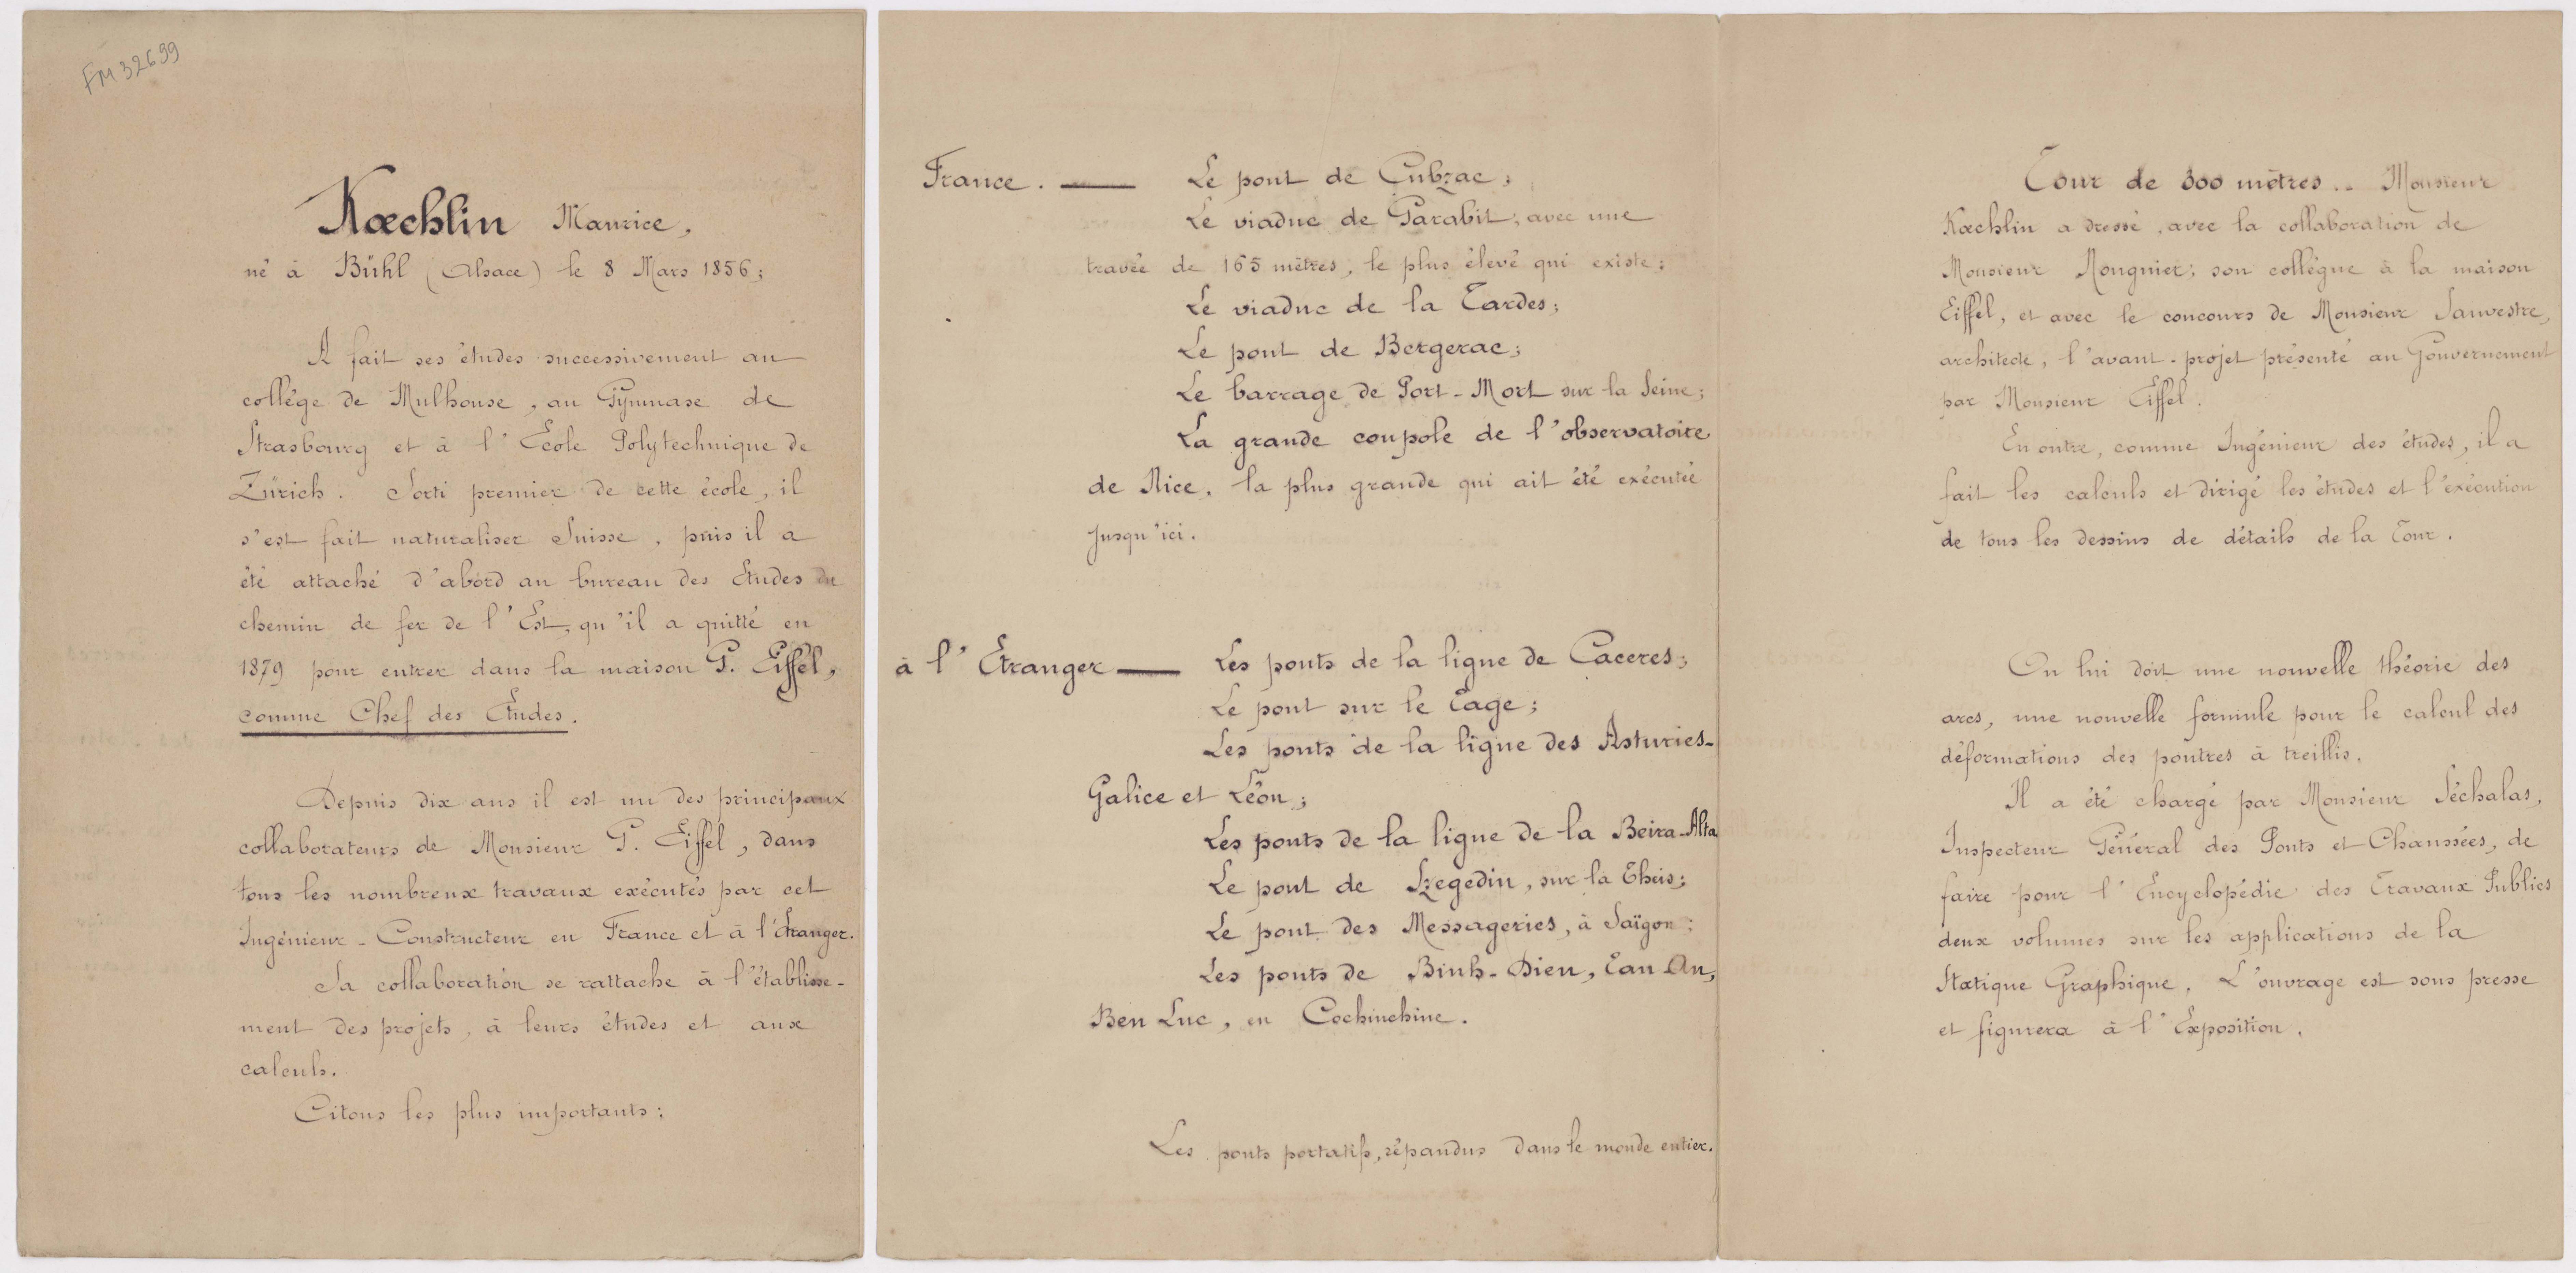 FM 32699
Kœchlin Maurice,
né à Bühl (Alsace) le 8 Mars 1856;
A fait ses études successivement au
collége de Mulhouse, au Gymnase de
Strasbourg et à l'Ecole Polytechnique de
Zürich. Sorti premier de cette école, il
s'est fait naturaliser Suisse, puis il a
été attaché d'abord au bureau des Etudes du
chemin de fer de l'Est, qu'il a quitté en
1879 pour entrer dans la maison G. Eiffel,
comme Chef des Etudes.
Depuis dix ans il est un des principaux
collaborateurs de Monsieur G. Eiffel, dans
tous les nombreux travaux exécutés par cet
Ingénieur-Constructeur en France et à l'étranger.
Sa collaboration se rattache à l'établisse-
ment des projets, à leurs études et aux
calculs.
Citons les plus importants:
France. — Le pont de Cubzac;
Le viaduc de Garabit, avec une
travée de 165 mètres, le plus élevé qui existe;
Le viaduc de la Tardes;
Le pont de Bergerac;
Le barrage de Port-Mort sur la Seine;
La grande coupole de l'observatoire
de Nice, la plus grande qui ait été exécutée
jusqu'ici.
à l'Etranger — Les ponts de la ligne de Caceres;
Le pont sur le Tage;
Les ponts de la ligne des Asturies-
Galice et Léon;
Les ponts de la ligne de la Beira-Alta
Le pont de Szegedin, sur la Theis;
Le pont des Messageries, à Saïgon;
Les ponts de Binh-Dien, Tan An,
Ben Luc, en Cochinchine.
Les ponts portatifs, répandus dans le monde entier.
Tour de 300 mètres.. Monsieur
Kœchlin a dressé, avec la collaboration de
Monsieur Nouguier; son collègue à la maison
Eiffel, et avec le concours de Monsieur Sauvestre,
architecte, l'avant-projet présenté au Gouvernement
par Monsieur Eiffel.
En outre, comme Ingénieur des études, il a
fait les calculs et dirigé les études et l'exécution
de tous les dessins de détails de la Tour.
On lui doit une nouvelle théorie des
arcs, une nouvelle formule pour le calcul des
déformations des poutres à treillis.
Il a été chargé par Monsieur Léchalas,
Inspecteur Général des Ponts et Chaussées, de
faire pour l'Encyclopédie des Travaux Publics
deux volumes sur les applications de la
Statique Graphique. L'ouvrage est sous presse
et figurera à l'Exposition.